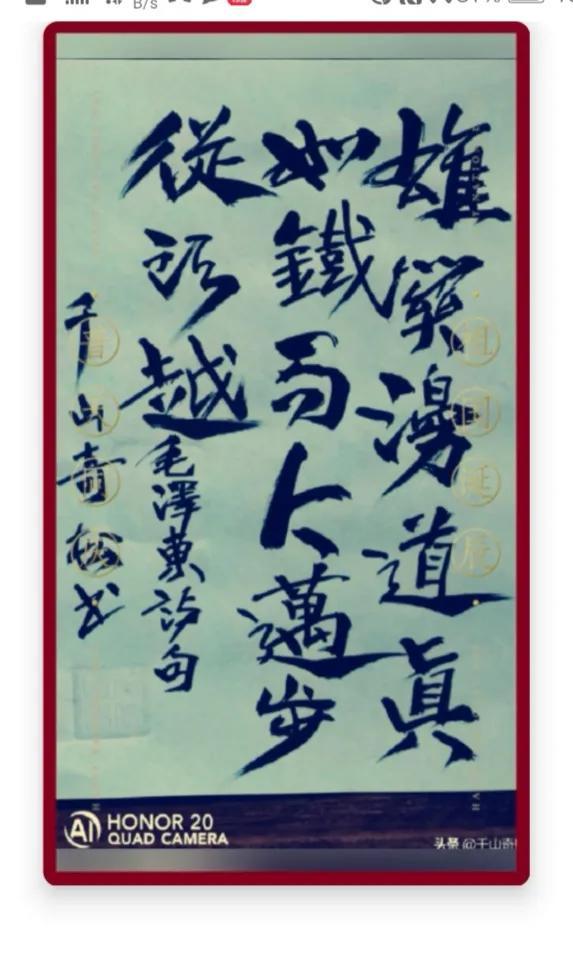 B/s
雄關漫道真
如鐵而今邁步
從頭越
毛澤東詩句
千山奇松书
祖国诞辰
AI HONOR 20
QUAD CAMERA
头条 @千山奇